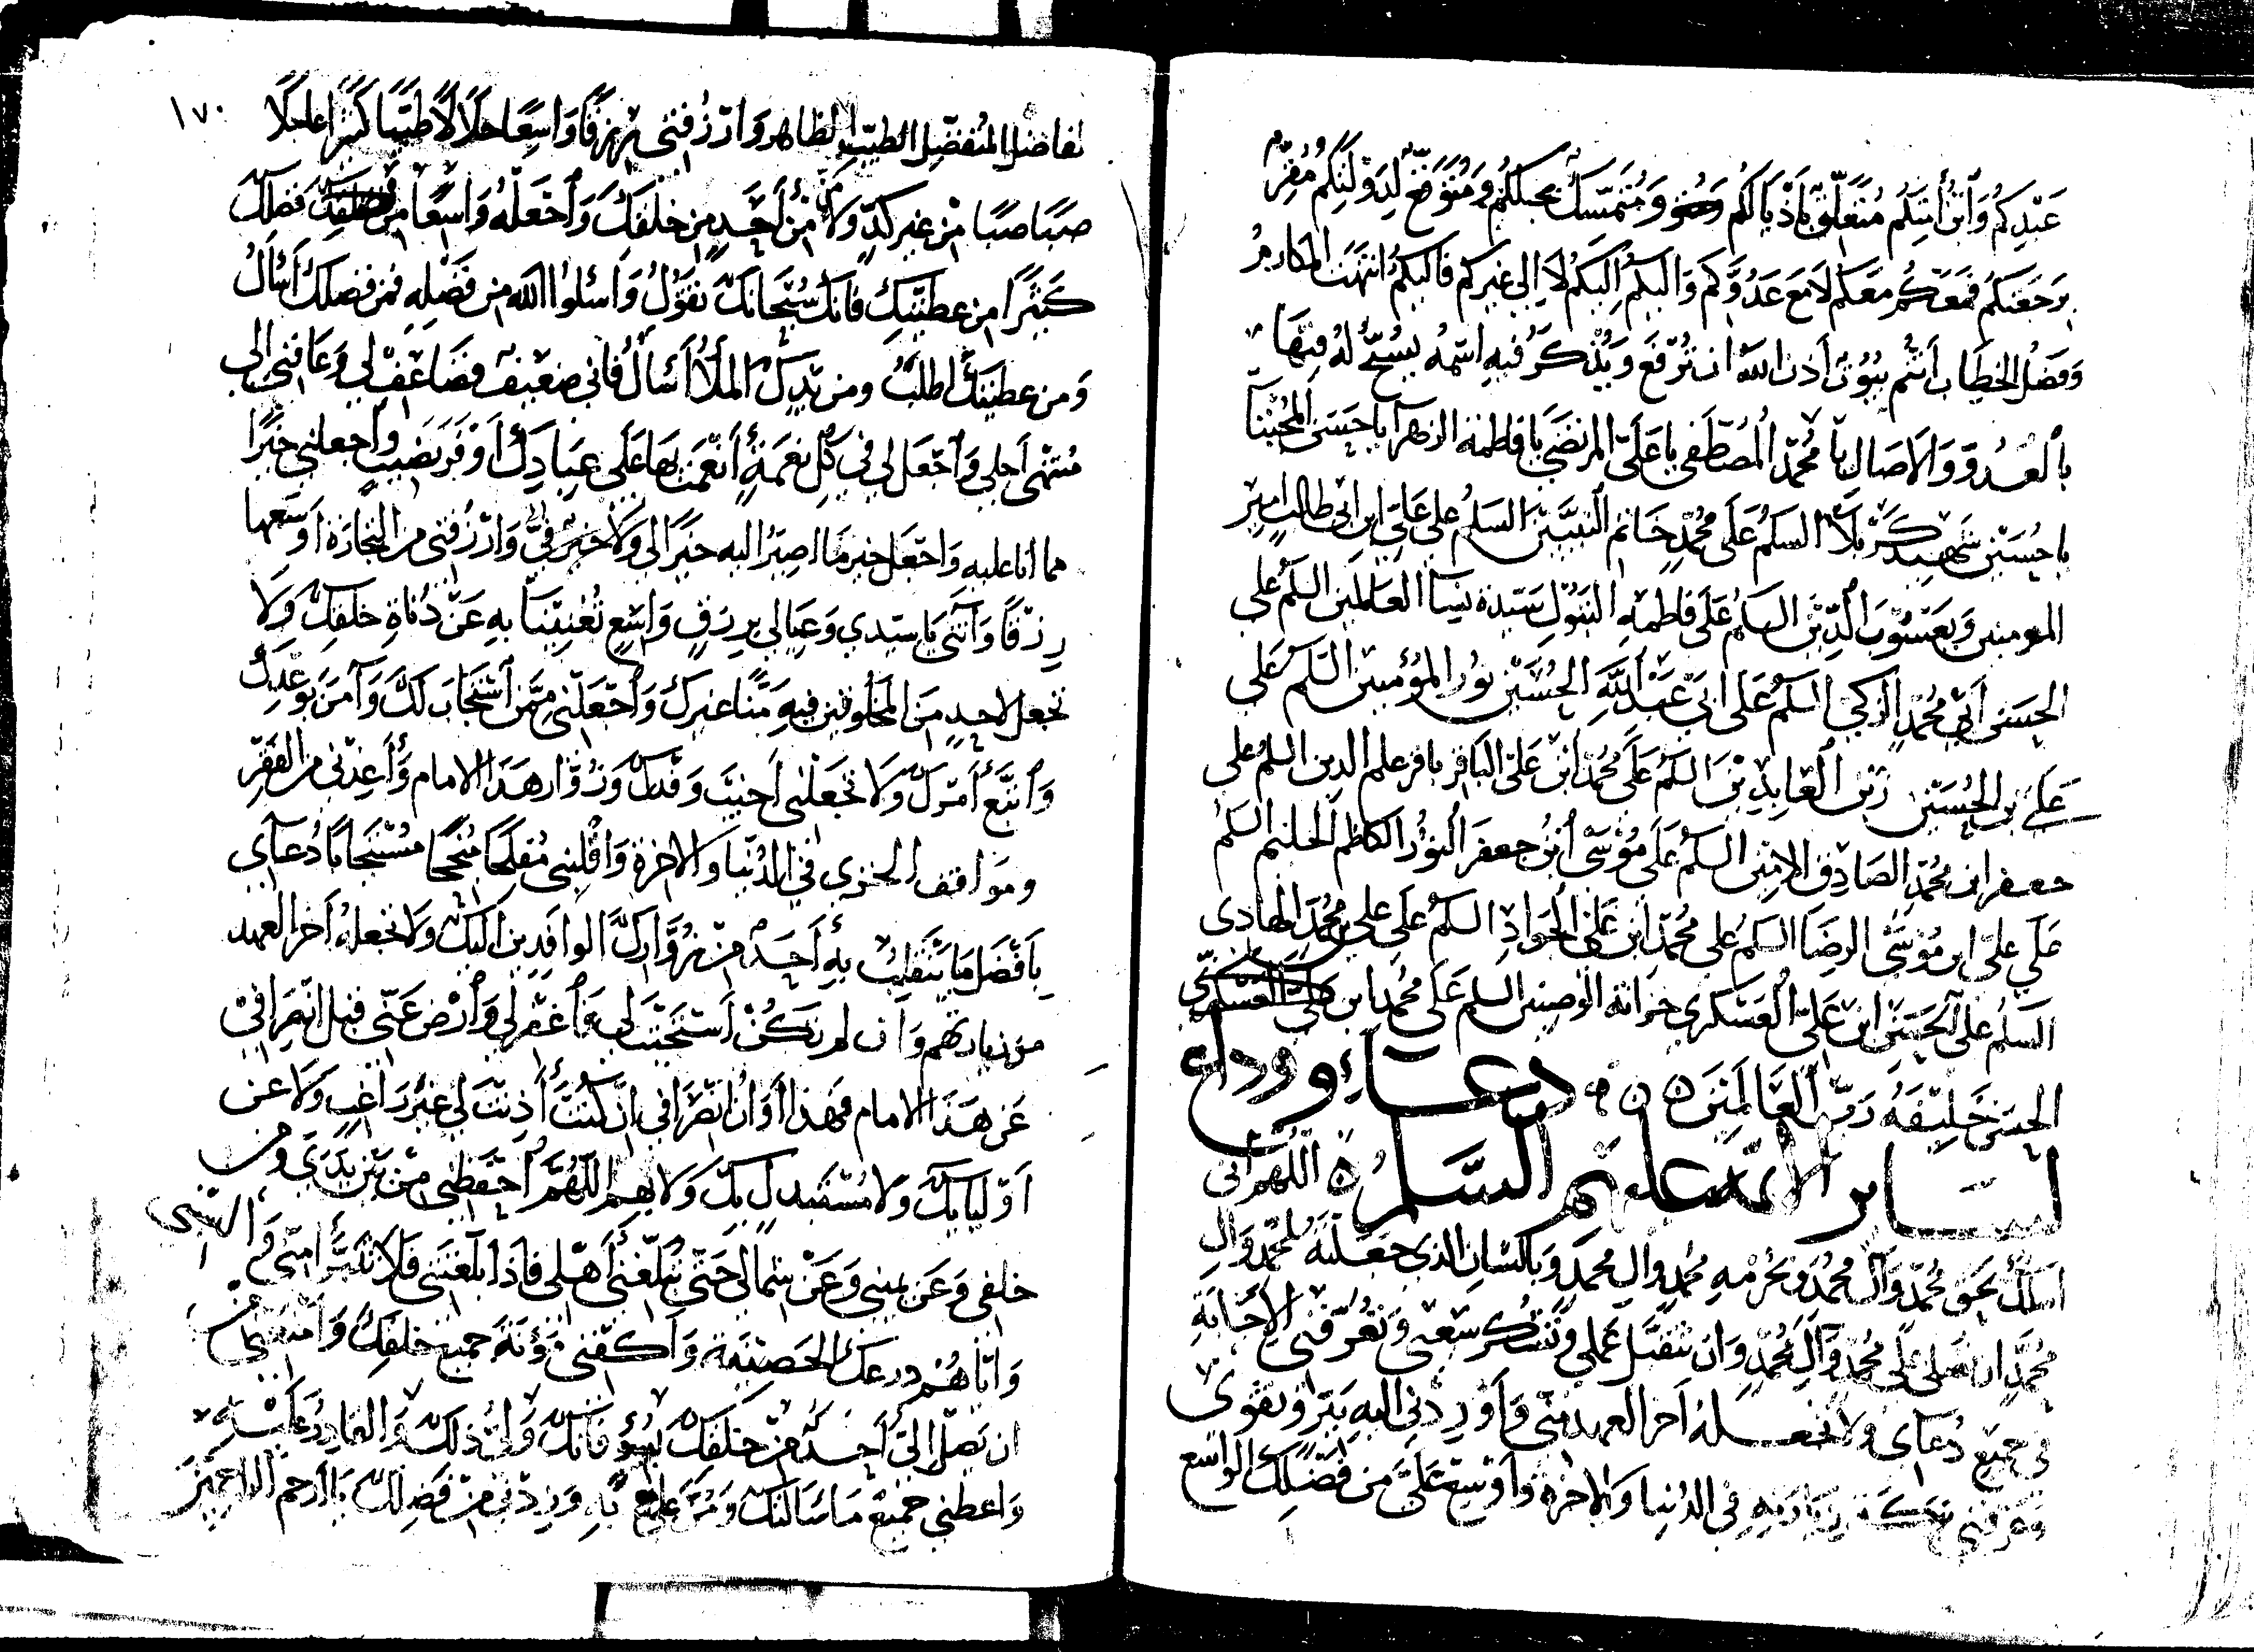 عَبْدِكُم وَابْنُ أَمَتِكُم مُتَعَلِّقٌ بِأَذْيَالِكُم وَمُتَمَسِّكٌ بِحَبْلِكُم وَمُتَوَقِّعٌ لِدَوْلَتِكُم مُقِرٌّ
بِرَجْعَتِكُم فَمَعَكُم مَعَكُم لَا مَعَ عَدُوِّكُم وَإِلَيْكُم إِلَيْكُم لَا إِلَى غَيْرِكُم فَإِلَيْكُم انْتَهَتِ المَكَارِمُ
وَفَصْلُ الخِطَابِ أَنْتُم بُيُوتٌ أَذِنَ اللهُ أَنْ تُرْفَعَ وَيُذْكَرَ فِيهِ اسْمُهُ يُسَبِّحُ لَهُ فِيهَا
بِالْغُدُوِّ وَالآصَالِ يَا مُحَمَّدُ المُصْطَفَى يَا عَلِيُّ المُرْتَضَى يَا فَاطِمَةُ الزَهْرَا يَا حَسَنُ المُجْتَبَا
يَا حُسَيْنُ شَهِيدُ كَرْبَلَا السَلَمُ عَلَى مُحَمَّدٍ خَاتَمِ النَبِيِّينَ السَلَمُ عَلَى عَلِيِّ ابْنِ أَبِي طَالِبٍ أَمِيرِ
المومنين وَيَعْسُوبِ الدِّينِ السَلَمُ عَلَى فَاطِمَةِ البَتُولِ سَيِّدَةِ نِسَا العَالَمِينَ السَلَمُ عَلَى
الحَسَنِ أَبِي مُحَمَّدٍ الزَكِيِّ السَلَمُ عَلَى أَبِي عَبْدِ اللهِ الحُسَيْنِ نُورِ المُؤْمِنِينَ السَلَمُ عَلَى
عَلِيِّ بْنِ الحُسَيْنِ زَيْنِ العَابِدِينَ السَلَمُ عَلَى مُحَمَّدِ ابْنِ عَلِيٍّ البَاقِرِ بَاقِرِ علمِ الدِينِ السَلَمُ عَلَى
جعفر ابن مُحَمَّدٍ الصَادِقِ الامِينِ السَلَمُ عَلَى مُوسَى ابْنِ جَعفَرٍ النُورِ الكَاظِمِ الحَلِيمِ السَلَمُ
عَلَى عَلِيِّ ابن مُوسَى الرِضَا السَلَمُ عَلَى مُحَمَّدِ ابْنِ عَلِيٍّ الجَوَادِ السَلَمُ عَلَى عَلِيِّ بن مُحَمَّدٍ الهَادِي
السَلَمُ عَلَى الحَسَنِ ابْنِ عَلِيٍّ العَسْكَرِي خزانة الوصيين السلم عَلَى مُحَمَّدِ ابن
الحَسَنِ خَلِيفَةِ رَبِّ العَالَمِينَ ٥ دعاء وداع
لسائر الائمة عليهم السلم ٥ اللهم اني
اسْأَلُكَ بِحَقِّ مُحَمَّدٍ وَآلِ مُحَمَّدٍ وَبِحُرْمَةِ مُحَمَّدٍ وَآلِ مُحَمَّدٍ وَبِالشَانِ الذِي جَعَلْتَهُ لِمُحَمَّدٍ وَآلِ
مُحَمَّدٍ أن تصلي عَلَى مُحَمَّدٍ وَآلِ مُحَمَّدٍ وَأَنْ تَتَقَبَّلَ عَمَلِي وَتَشْكُرَ سَعْيِي وَتُعَرِّفَنِي الإِجَابَةَ
فِي جَمِيعِ دُعَائِي وَلَا تجعله آخِرَ العَهْدِ مِنِّي وَأَوْرِدْنِي إليهِ بِبِرٍّ وَتَقْوَى
وَعَرِّفْنِي بركة زيارته فِي الدُنْيَا وَالآخِرَةِ وَأَوْسِعْ عَلَيَّ مِنْ فَضْلِكَ الوَاسِعِ
١٧٠
الفَاضِلِ المُتَفَضِّلِ الطَيِّبِ الطَاهِرِ وَارْزُقْنِي رِزْقًا وَاسِعًا حَلَالًا طَيِّبًا كَثِيرًا عَاجِلًا
صَبًّا صَبًّا مِنْ غَيْرِ كَدٍّ وَلَا مَنٍّ مِنْ أَحَدٍ مِنْ خَلْقِكَ وَاجْعَلْهُ وَاسِعًا مِن فَضْلِكَ
كَثِيرًا مِن عَطِيَّتِكَ فَإِنَّكَ سُبْحَانَكَ تَقُولُ وَاسْئَلُوا اللهَ مِن فَضْلِهِ فَمِن فَضْلِكَ أَسْأَلُ
وَمِن عَطِيَّتِكَ أَطْلُبُ وَمِن يَدِكَ المَلْأَا أَسْأَلُ فَإِنِّي ضَعِيفٌ فَضَاعِفْ لِي وَعَافِنِي إلى
مُنْتَهَى أَجَلِي وَاجْعَل لِي فِي كُلِّ نِعْمَةٍ أَنْعَمْتَ بِهَا عَلَى عِبَادِكَ أَوْفَرَ نَصِيبٍ وَاجْعَلْنِي خَيْرًا
مما أنا عليه وَاجْعَل خيرَ مَا أَصِيرُ إليه خَيْرًا لِي وَلَا خَيْرَ فِيَّ وَارْزُقْنِي مِنَ التِجَارَةِ أَوْسَعَهَا
رِزْقًا وَآتِنِي يَا سَيِّدِي وَعِيَالِي بِرِزْقٍ وَاسِعٍ تُغْنِينَا بِهِ عَنْ دُنَاةِ خَلْقِكَ وَلَا
تَجْعَلْ لِأَحَدٍ مِنَ المَخْلُوقِينَ فِيهِ مَنًّا غَيْرَكَ وَاجْعَلْنِي مِمَّنْ اسْتَجَابَ لَكَ وَآمَنَ بِوَعْدِكَ
وَاتَّبَعَ أَمْرَكَ وَلَا تَجْعَلْنِي أَخْيَبَ وَفْدِكَ وَزُوَّارِ هَذَا الامام وَأَعِذْنِي مِنَ الفَقْرِ
وَمَوَاقِفِ الخِزْيِ فِي الدُنْيَا وَالآخِرَةِ وَاقْلِبْنِي مُفْلِحًا مُنْجِحًا مُسْتَجَابًا دُعَائِي
بِأَفْضَلِ مَا يَنْقَلِبُ بِهِ أَحَدٌ مِنْ زُوَّارِكَ الوَافِدِينَ إِلَيْكَ وَلَا تَجْعَلْهُ آخِرَ العَهْدِ
مِنْ زِيَارَتِهِم وَإِن لم تَكُنْ اسْتَجَبْتَ لِي وَاغْفِرْ لِي وَارْضَ عَنِّي قَبْلَ انْصِرَافِي
عَنْ هَذَا الامام فَهَذَا أَوَانُ انْصِرَافِي إِنْ كُنْتَ أَذِنْتَ لِي غَيْرَ رَاغِبٍ وَلَا عَنْ
أَوْلِيَائِكَ وَلَا مُسْتَبْدِلٍ بِكَ وَلَا بِهِم اللَّهُمَّ احْفَظْنِي مِنْ بَيْنِ يَدَيَّ وَمِن
خَلْفِي وَعَن يَمِينِي وَعَنْ شِمَالِي حَتَّى تُبَلِّغَنِي أَهْلِي فَإِذَا بَلَّغْتَنِي فَلَا تَبَرَّأْ مِنِّي وَالبسني
وَإِيَّاهُم دِرْعَكَ الحَصِينَةَ وَاكْفِنِي مَؤُنَةَ جَمِيعِ خَلْقِكَ وَامنعني من
أن يَصِلَ إِلَيَّ أَحَدٌ مِنْ خَلْقِكَ بِسُوءٍ فَإِنَّكَ وَلِيُّ ذَلِكَ وَالقَادِرُ عَلَيْهِ
وَاعْطِنِي جَمِيعَ مَا سَأَلْتُكَ وَمُنَّ عَلَيَّ بِهِ وَزِدْنِي مِنْ فَضْلِكَ يَا أَرْحَمَ الرَاحِمِينَ